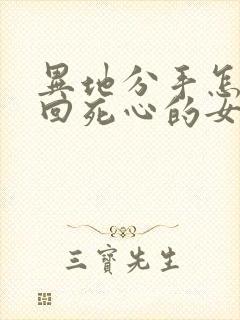 異地分手怎
回死心的女
三寶先生